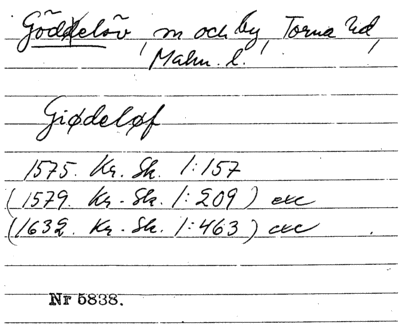 Gödelöv, sn och by, Torna hd,
Malm. l.
Giødeløf
1575. Kr. Sk. 1:157
(1579. Kr. Sk. 1:209) etc
(1632. Kr. Sk. 1:463) etc
Nr 5838.